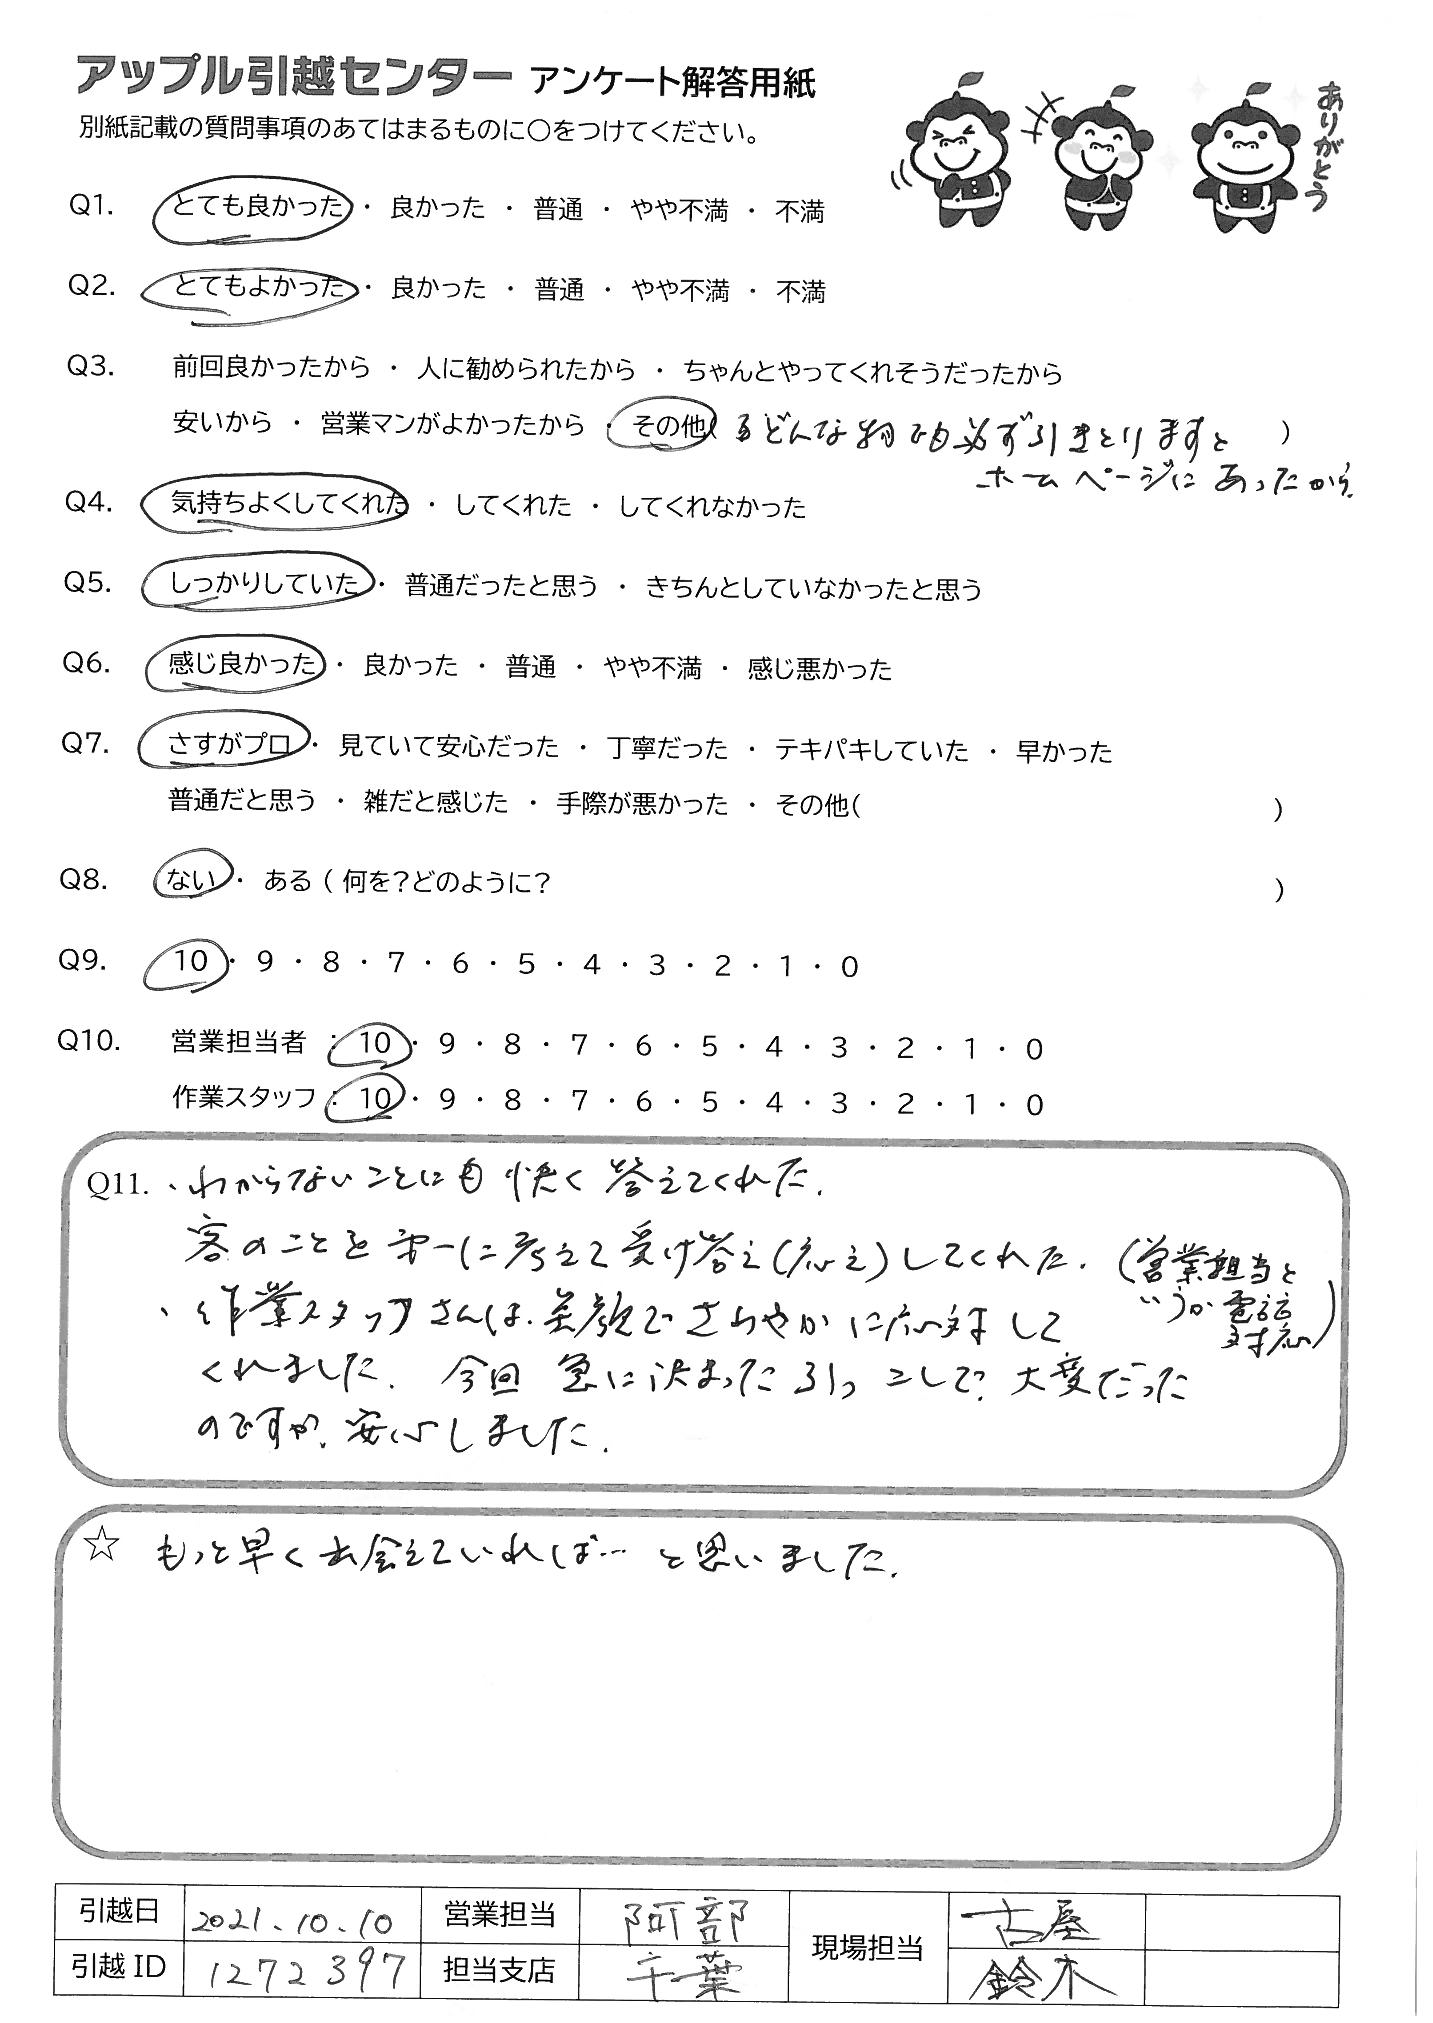 アップル引越センター アンケート解答用紙
別紙記載の質問事項のあてはまるものに○をつけてください。
ありがとう
Q1. とても良かった ・ 良かった ・ 普通 ・ やや不満 ・ 不満
Q2. とてもよかった ・ 良かった ・ 普通 ・ やや不満 ・ 不満
Q3. 前回良かったから ・ 人に勧められたから ・ ちゃんとやってくれそうだったから
安いから ・ 営業マンがよかったから ・ その他( どんな物でも必ず引きとりますと )
ホームページにあったから。
Q4. 気持ちよくしてくれた ・ してくれた ・ してくれなかった
Q5. しっかりしていた ・ 普通だったと思う ・ きちんとしていなかったと思う
Q6. 感じ良かった ・ 良かった ・ 普通 ・ やや不満 ・ 感じ悪かった
Q7. さすがプロ ・ 見ていて安心だった ・ 丁寧だった ・ テキパキしていた ・ 早かった
普通だと思う ・ 雑だと感じた ・ 手際が悪かった ・ その他( )
Q8. ない ・ ある ( 何を?どのように? )
Q9. 10 ・ 9 ・ 8 ・ 7 ・ 6 ・ 5 ・ 4 ・ 3 ・ 2 ・ 1 ・ 0
Q10. 営業担当者 : 10 ・ 9 ・ 8 ・ 7 ・ 6 ・ 5 ・ 4 ・ 3 ・ 2 ・ 1 ・ 0
作業スタッフ : 10 ・ 9 ・ 8 ・ 7 ・ 6 ・ 5 ・ 4 ・ 3 ・ 2 ・ 1 ・ 0
Q11. 、わからないことにも快く答えてくれた。
客のことを第一に考えて受け答え(応え)してくれた。(営業担当と
いうか電話
対応)
、作業スタッフさんは、笑顔でさわやかに応対して
くれました。今回急に決まった引っこしで、大変だった
のですが、安心しました。
☆ もっと早く出会えていれば… と思いました。
引越日 2021.10.10 営業担当 阿部 現場担当 古屋
引越ID 1272397 担当支店 千葉 鈴木